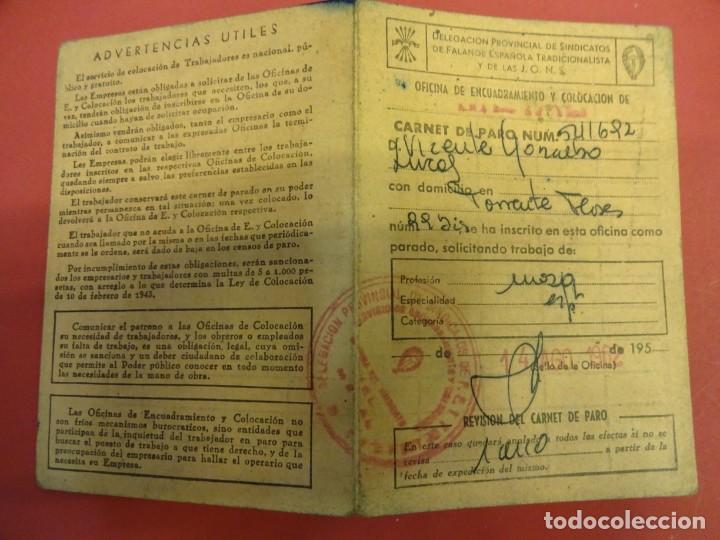 ADVERTENCIAS UTILES
El servicio de colocación de Trabajadores es nacional, pú-
blico y gratuito.
Las Empresas están obligadas a solicitar de las Oficinas de
E. y Colocación los trabajadores que necesiten, los que, a su
vez, tendrán obligación de inscribirse en la Oficina de su do-
micilio cuando hayan de solicitar ocupación.
Asimismo vendrán obligados, tanto el empresario como el
trabajador, a comunicar a las expresadas Oficinas la termi-
nación del contrato de trabajo.
Las Empresas podrán elegir libremente entre los trabaja-
dores inscritos en las respectivas Oficinas de Colocación,
quedando siempre a salvo las preferencias establecidas en las
disposiciones.
El trabajador conservará este carnet de parado en su poder
mientras permanezca en tal situación; una vez colocado, lo
devolverá a la Oficina de E. y Colocación respectiva.
El trabajador que no acuda a la Oficina de E. y Colocación
cuando sea llamado por la misma o en las fechas que periódica-
mente se le ordene, será dado de baja en los censos de paro.
Por incumplimiento de estas obligaciones, serán sanciona-
dos los empresarios y trabajadores con multas de 5 a 1.000 pe-
setas, con arreglo a lo que determina la Ley de Colocación
de 10 de febrero de 1943.
Comunicar el patrono a las Oficinas de Colocación
su necesidad de trabajadores, y los obreros o empleados
su falta de trabajo, es una obligación legal, cuya omi-
sión se sanciona y un deber ciudadano de colaboración
que permite al Poder público conocer en todo momento
las necesidades de la mano de obra.
Las Oficinas de Encuadramiento y Colocación no
son fríos mecanismos burocraticos, sino entidades que
participan de la inquietud del trabajador en paro para
buscar el puesto de trabajo a que tiene derecho, y de la
preocupación del empresario para hallar el operario que
necesita su Empresa.
DELEGACION PROVINCIAL DE SINDICATOS
DE FALANGE ESPAÑOLA TRADICIONALISTA
Y DE LAS J.O.N.S.
OFICINA DE ENCUADRAMIENTO Y COLOCACION DE
CARNET DE PARO NUM. 541692
D. Vicente
con domicilio en
Torrente Flores
núm. 22 se ha inscrito en esta oficina como
parado, solicitando trabajo de:
Profesión
Especialidad
Categoría
de 14 AGO 1952 de 195
(Sello de la Oficina)
REVISION DEL CARNET DE PARO
En este caso quedará anulado a todos los efectos si no se
revisa a partir de la
fecha de expedición del mismo.
todocoleccion.net